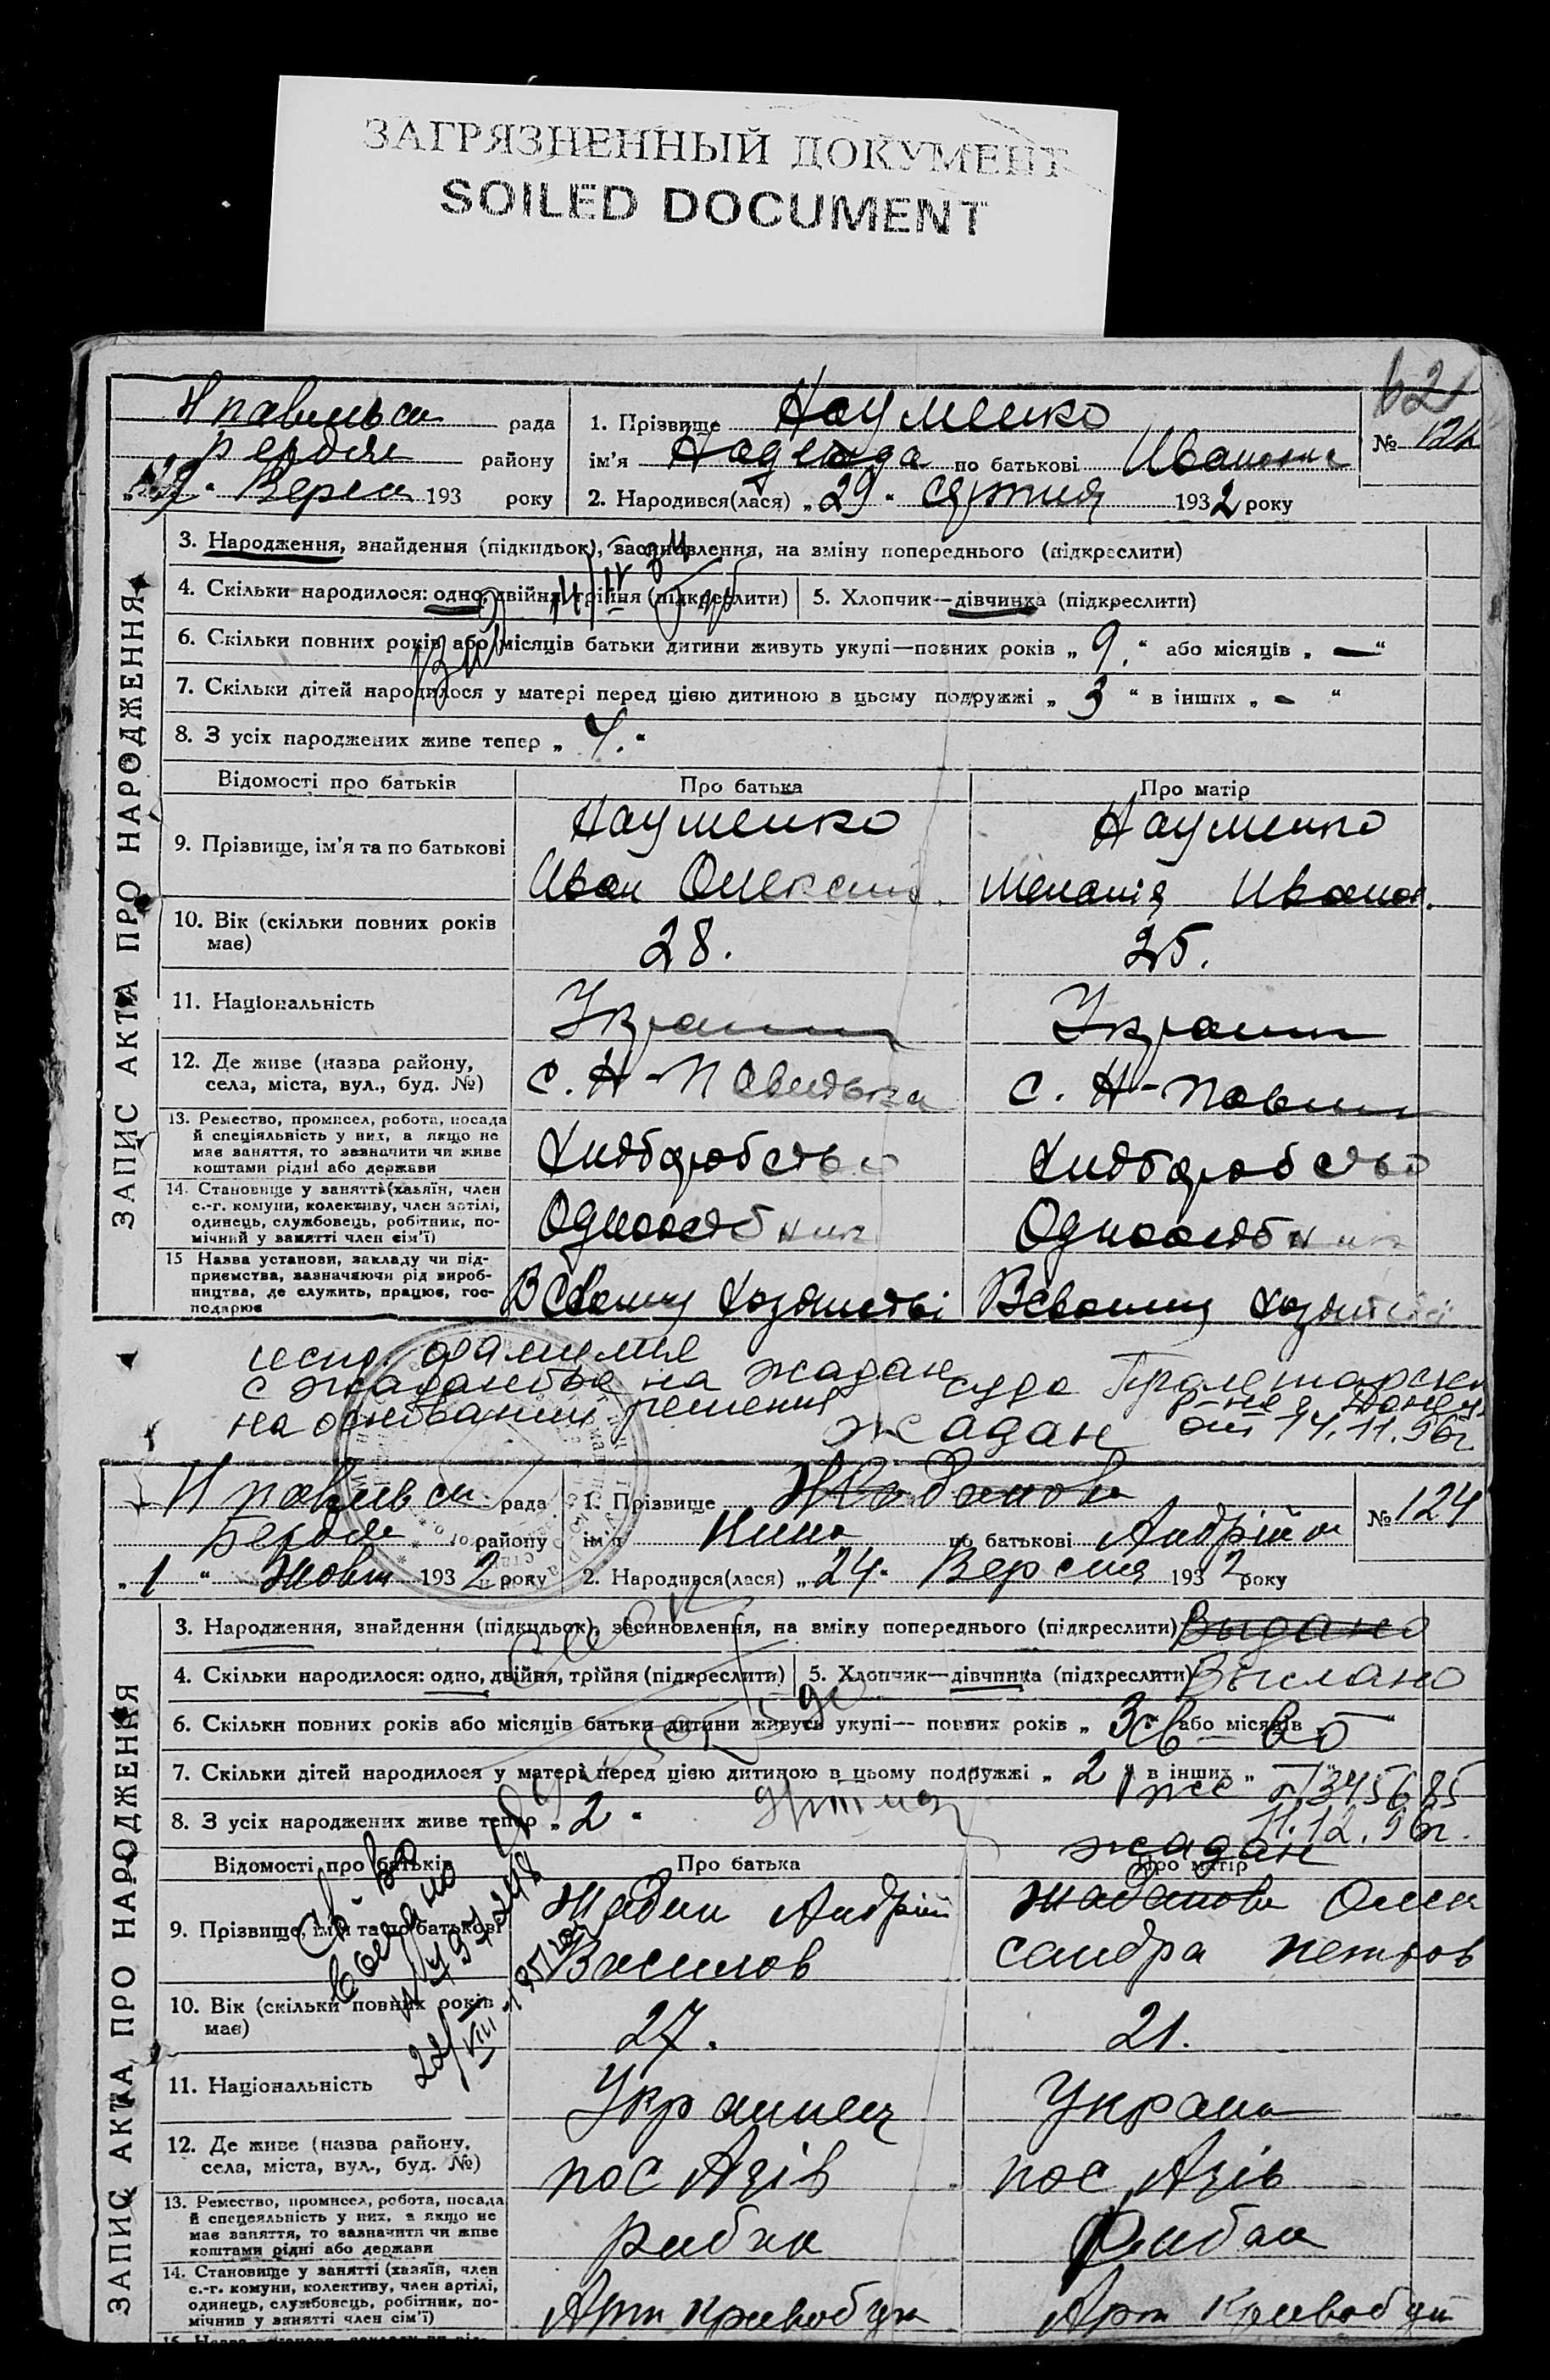 ЗАГРЯЗНЕННЫЙ ДОКУМЕНТ
SOILED DOCUMENT
62
рада
району
Верес 193 року
1. Прізвище Науменко
ім'я Надежда по батькові Ивановна
2. Народився(лася) „29" серпня 1932 року
№
ЗАПИС АКТА ПРО НАРОДЖЕННЯ
3. Народження, знайдення (підкидьок), засиновлення, на зміну попереднього (підкреслити)
4. Скільки народилося: одно, двійня, трійня (підкреслити) 5. Хлопчик—дівчинка (підкреслити)
6. Скільки повних років або місяців батьки дитини живуть укупі—повних років „ 9. " або місяців „ — "
7. Скільки дітей народилося у матері перед цією дитиною в цьому подружжі „ 3 " в інших „ - "
8. З усіх народжених живе тепер „ 4. "
Відомості про батьків Про батька Про матір
9. Прізвище, ім'я та по батькові Науменко Науменко
Иван Олексій. Меланія Иванов.
10. Вік (скільки повних років має) 28. 25.
11. Національність Украин Украин
12. Де живе (назва району, села, міста, вул., буд. №) с. Н-Павлівка с. Н-Павлів
13. Ремество, промисел, робота, посада й спеціяльність у них, а якщо не має заняття, то зазначити чи живе коштами рідні або держави Хліборобство Хліборобство
14. Становище у занятті (хазяїн, член с.-г. комуни, колективу, член артілі, одинець, службовець, робітник, помічний у занятті член сім'ї) Одноосібник Одноосібник
15 Назва установи, закладу чи підприємства, зазначаючи рід виробництва, де служить, працює, господарює В своему хозяйстві В своему хозяйстві
испр. фамилия
с Жадановой на Жадан
на основании решения суда Пролетарск
р-на г. Донец
Жадан от 14.11.96г
рада
Бердян району
„ 1 " Жовт 1932 року
1. Прізвище Жаданова
ім'я Нина по батькові Андрійов
2. Народився(лася) „24" Вересня 1932 року
№ 124
ЗАПИС АКТА ПРО НАРОДЖЕННЯ
3. Народження, знайдення (підкидьок), засиновлення, на зміну попереднього (підкреслити) Выдано
4. Скільки народилося: одно, двійня, трійня (підкреслити) 5. Хлопчик—дівчинка (підкреслити) Выслано
6. Скільки повних років або місяців батьки дитини живуть укупі— повних років „ 3 " або місяців „ — " св-во
7. Скільки дітей народилося у матері перед цією дитиною в цьому подружжі „ 2 " в інших „
345685
8. З усіх народжених живе тепер „ 2 "
11.12.96г.
Жадан
Відомості про батьків Про батька Про матір
9. Прізвище, ім'я та по батькові Жадан Андрій Жаданова Олек
Василов сандра Петров
Св-во
10. Вік (скільки повних років має) 27. 21.
11. Національність Украинец Украин
12. Де живе (назва району, села, міста, вул., буд. №) пос Азів пос Азів
13. Ремество, промисел, робота, посада й спеціяльність у них, а якщо не має заняття, то зазначити чи живе коштами рідні або держави рибак Рибак
14. Становище у занятті (хазяїн, член с.-г. комуни, колективу, член артілі, одинець, службовець, робітник, помічний у занятті член сім'ї) Арт Арт